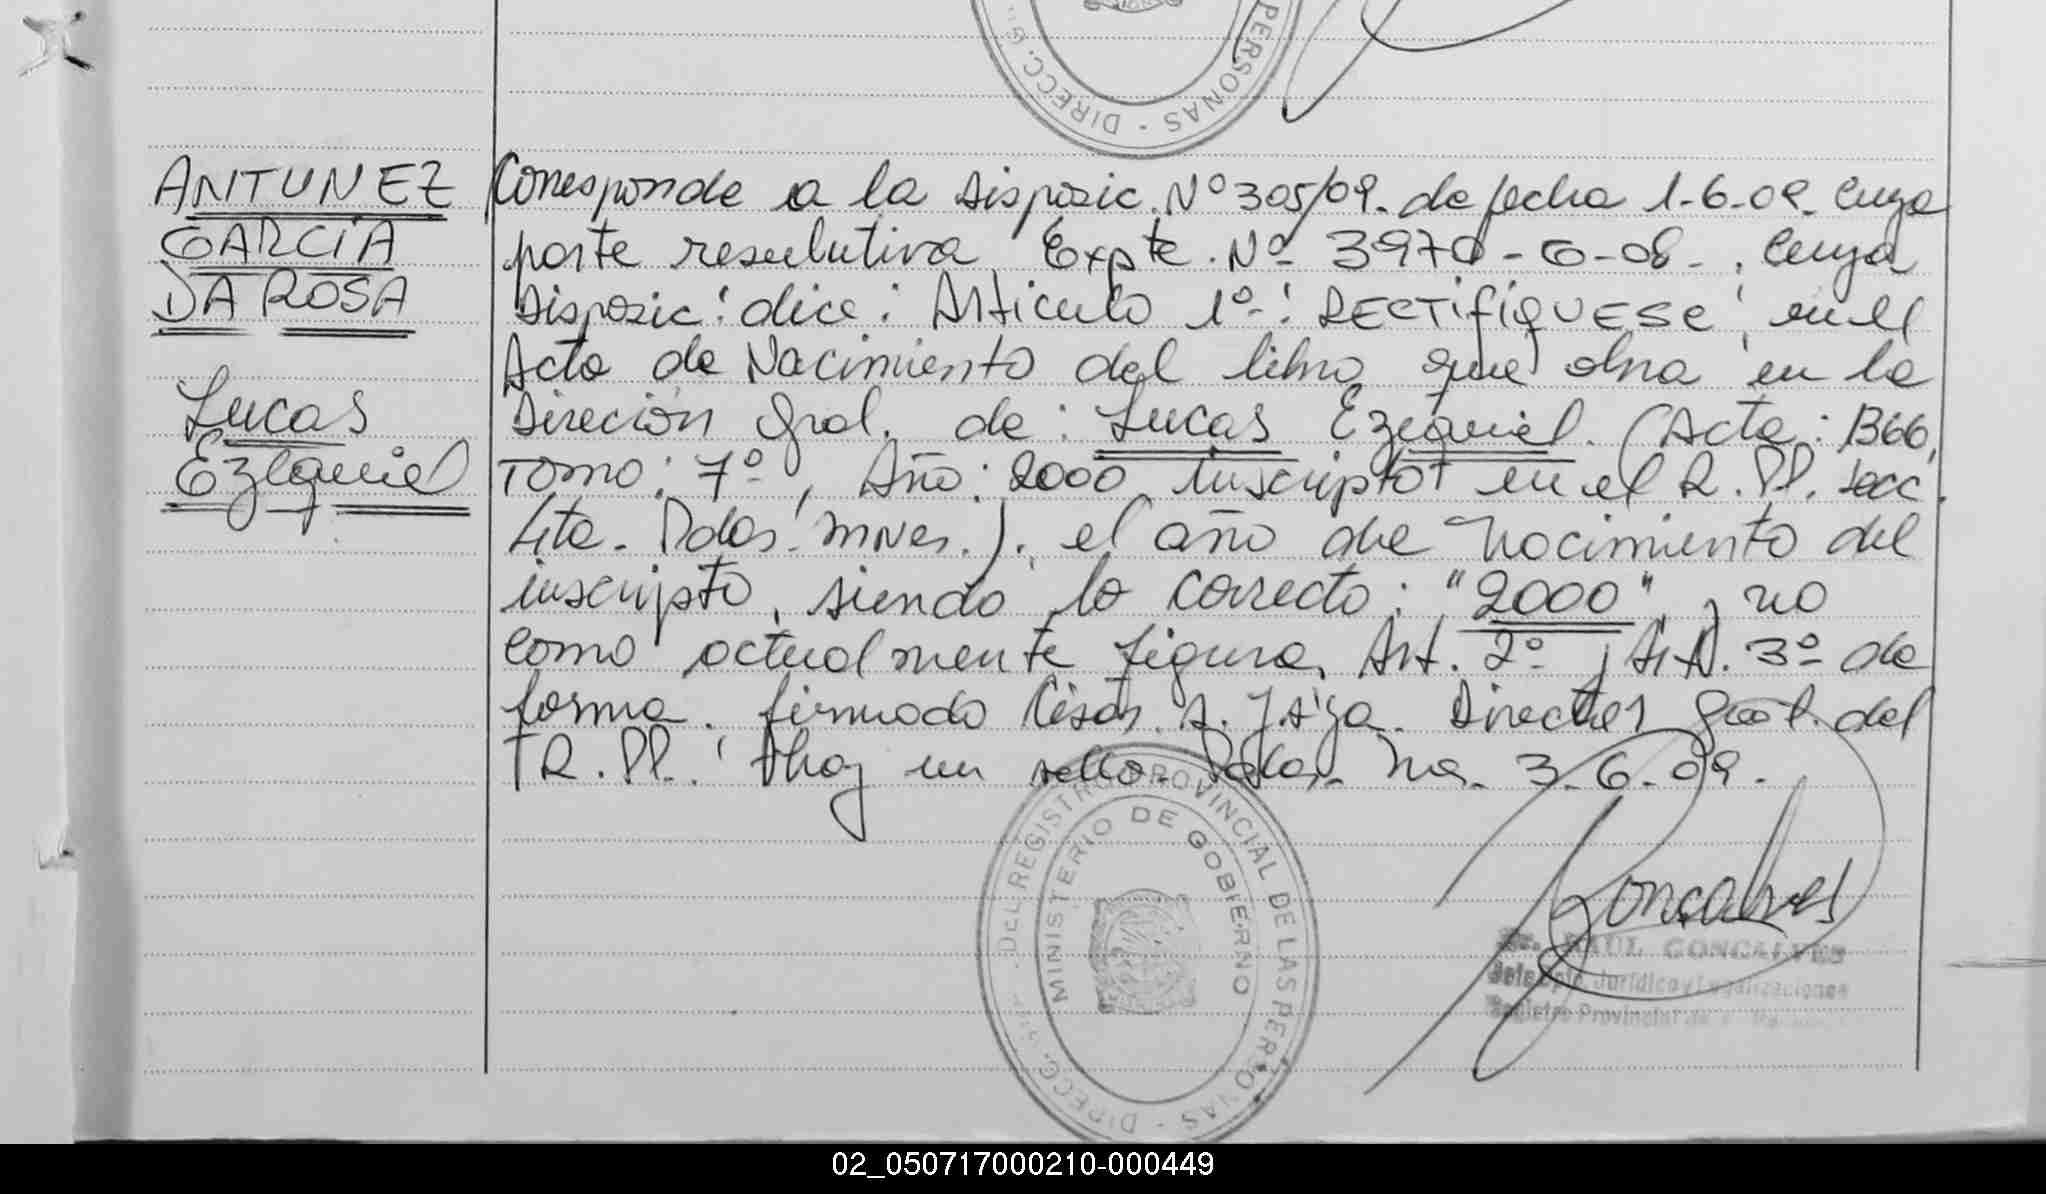 PERSONAS - DIRECC. G
ANTUNEZ
GARCIA
DA ROSA
Lucas
Ezequiel
Corresponde a la Dispozic. Nº 305/09. de fecha 1-6-09. Cuya
parte resulutiva Expte. Nº 3970-G-08-. Cuya
Dispozic: dice: Articulo 1º: RECTIFIQUESE, en el
Acta de Nacimiento del libro que obra en la
Direción Gral. de: Lucas Ezequiel. (Acta: 1366,
Tomo: 7º, Año: 2000 Inscripto en el R.PP. secc.
4ta. Pdas. Mnes.). el año de Nacimiento del
inscripto, siendo lo correcto: "2000", y no
como actualmente figura, Art. 2º y Art. 3º de
forma. firmado César A. Director Gral. del
R.PP. Ahoj un sello. Pdas. 3-6-09.
DIRECC. GRAL. DEL REGISTRO PROVINCIAL DE LAS PERSONAS
MINISTERIO DE GOBIERNO
Goncalves
Dr. RAUL GONCALVES
Jurídico y Legalizaciones
Registro Provincial de
02_050717000210-000449